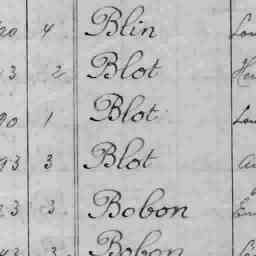 20 4 Blin Lou
3 2 Blot Hen
90 1 Blot Lou
93 3 Blot
23 3 Bobon
3 Bobon